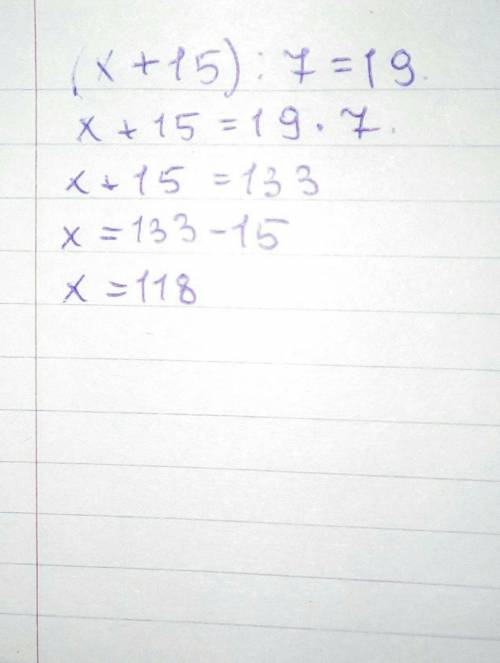 (x + 15) : 7 = 19.
x + 15 = 19 · 7.
x + 15 = 133
x = 133 - 15
x = 118